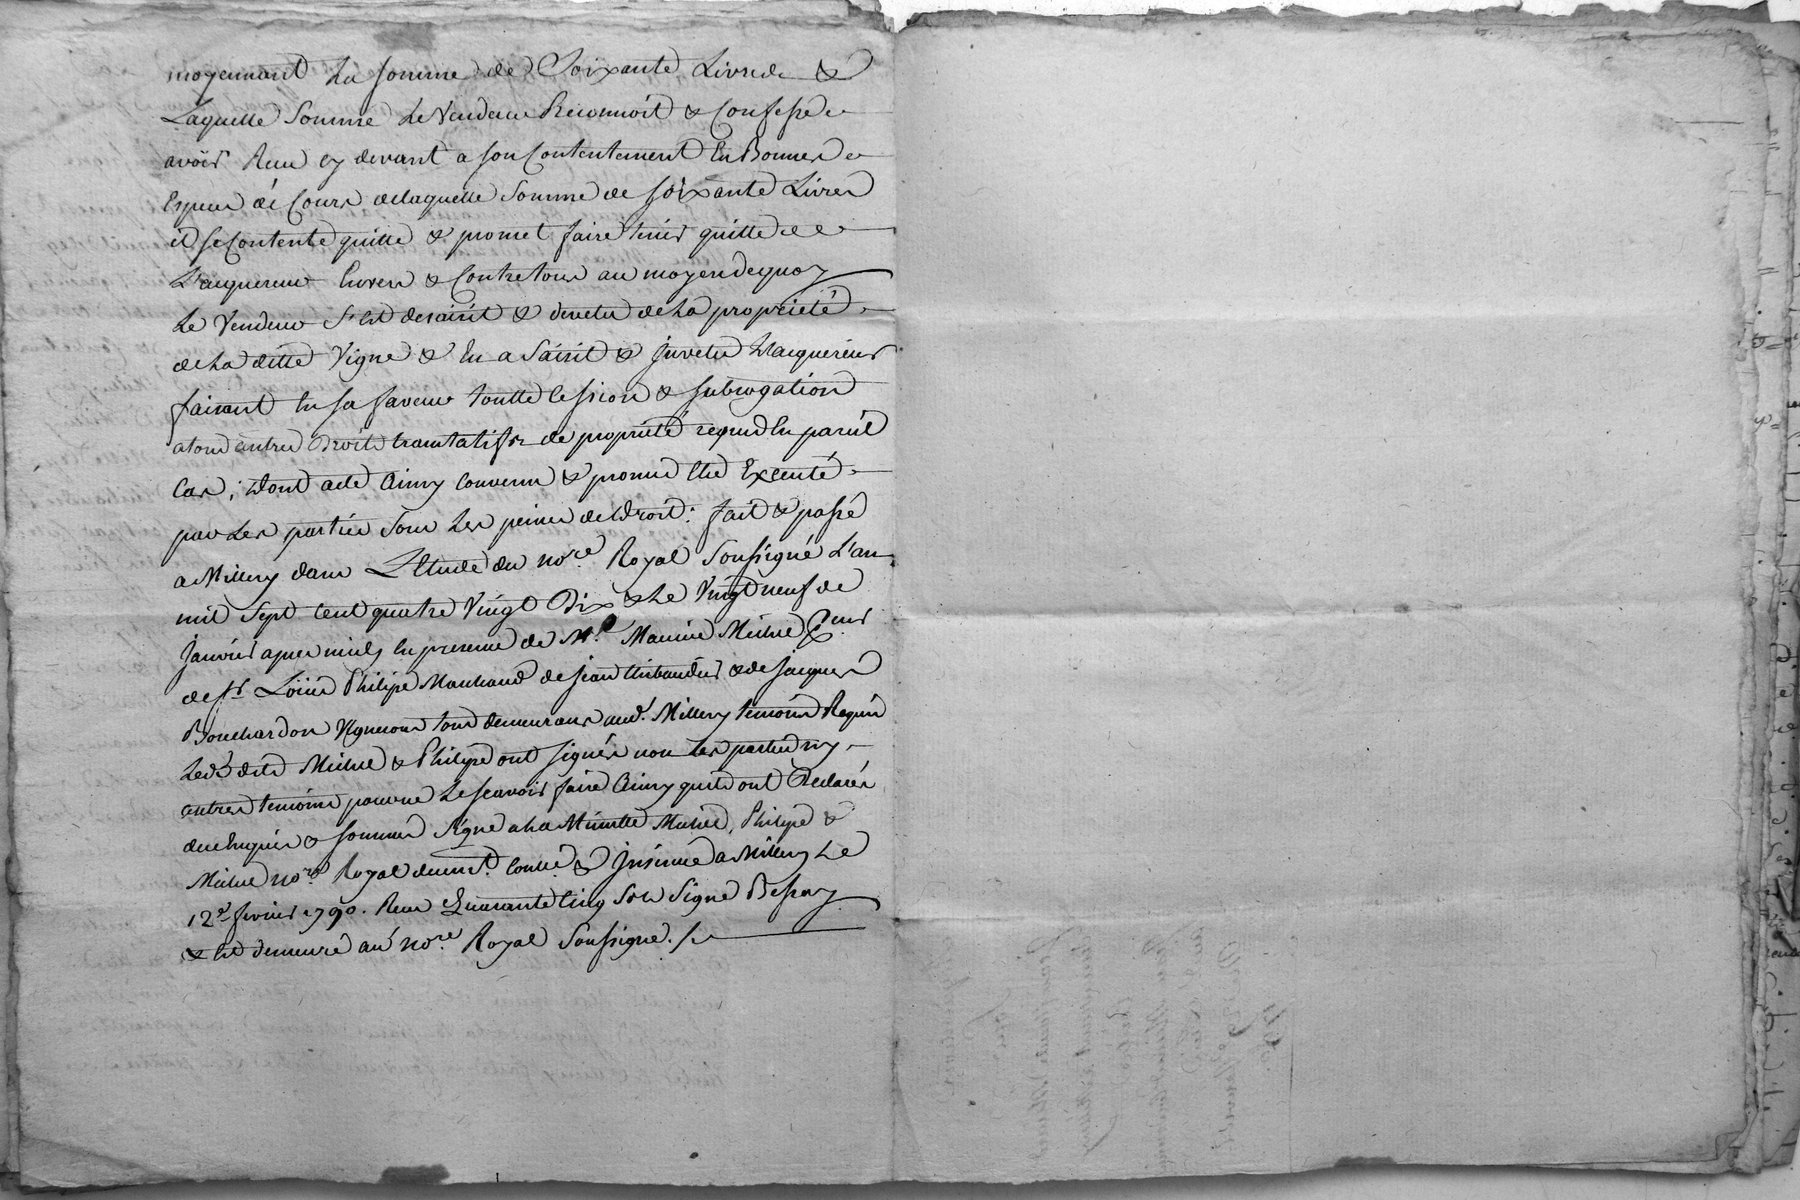 moyennant La somme de Soixante Livres &
Laquelle Somme Le Vendeur Reconnoit & Confesse
avoir Reçu cy devant a son Contentement En Bonnes
Espece de Cours de laquelle Somme de soixante Livres
il se Contente quitte & promet faire tenir quitte
L'acquereur Envers & Contre tous au moyen de quoy
Le Vendeur s'est desaisit & devetu de La proprieté
de La ditte Vigne & En a Saisit & Jnvetu L'acquereur
faisant En sa faveur toutte Cession & subrogation
a tous autres Droits translatifs de proprieté requis En pareil
Cas; Dont acte Ainsy convenu & promis Etre Executé
par Les parties Sous Les peines de Droit: fait & passé
a Millery dans L'Etude du no.re Royal Soussigné L'an
mil Sept Cent quatre Vingt Dix & Le Vingt neuf de
Janvier apres midy En presence de M.e Maurice Michel
de s.r Loüis Philipe Marchand de jean thibaudier & de jacques
Bouchardon Vignerons tous demeurans aud.t Millery temoins Requis
Les dits Michel & Philipe ont signés non Les parties ny
autres temoins pour ne Le scavoir faire Ainsy qu'ils ont Declarés
de ce Enquis & sommés Signé a La Minutte Michel, Philipe &
Michel no.re Royal Contlé & Jnsinué a Millery Le
12.e fevrier 1790. Reçu Quarante Cinq Sols Signé Bessay
& Est demeuré au no.re Royal Soussigné./.